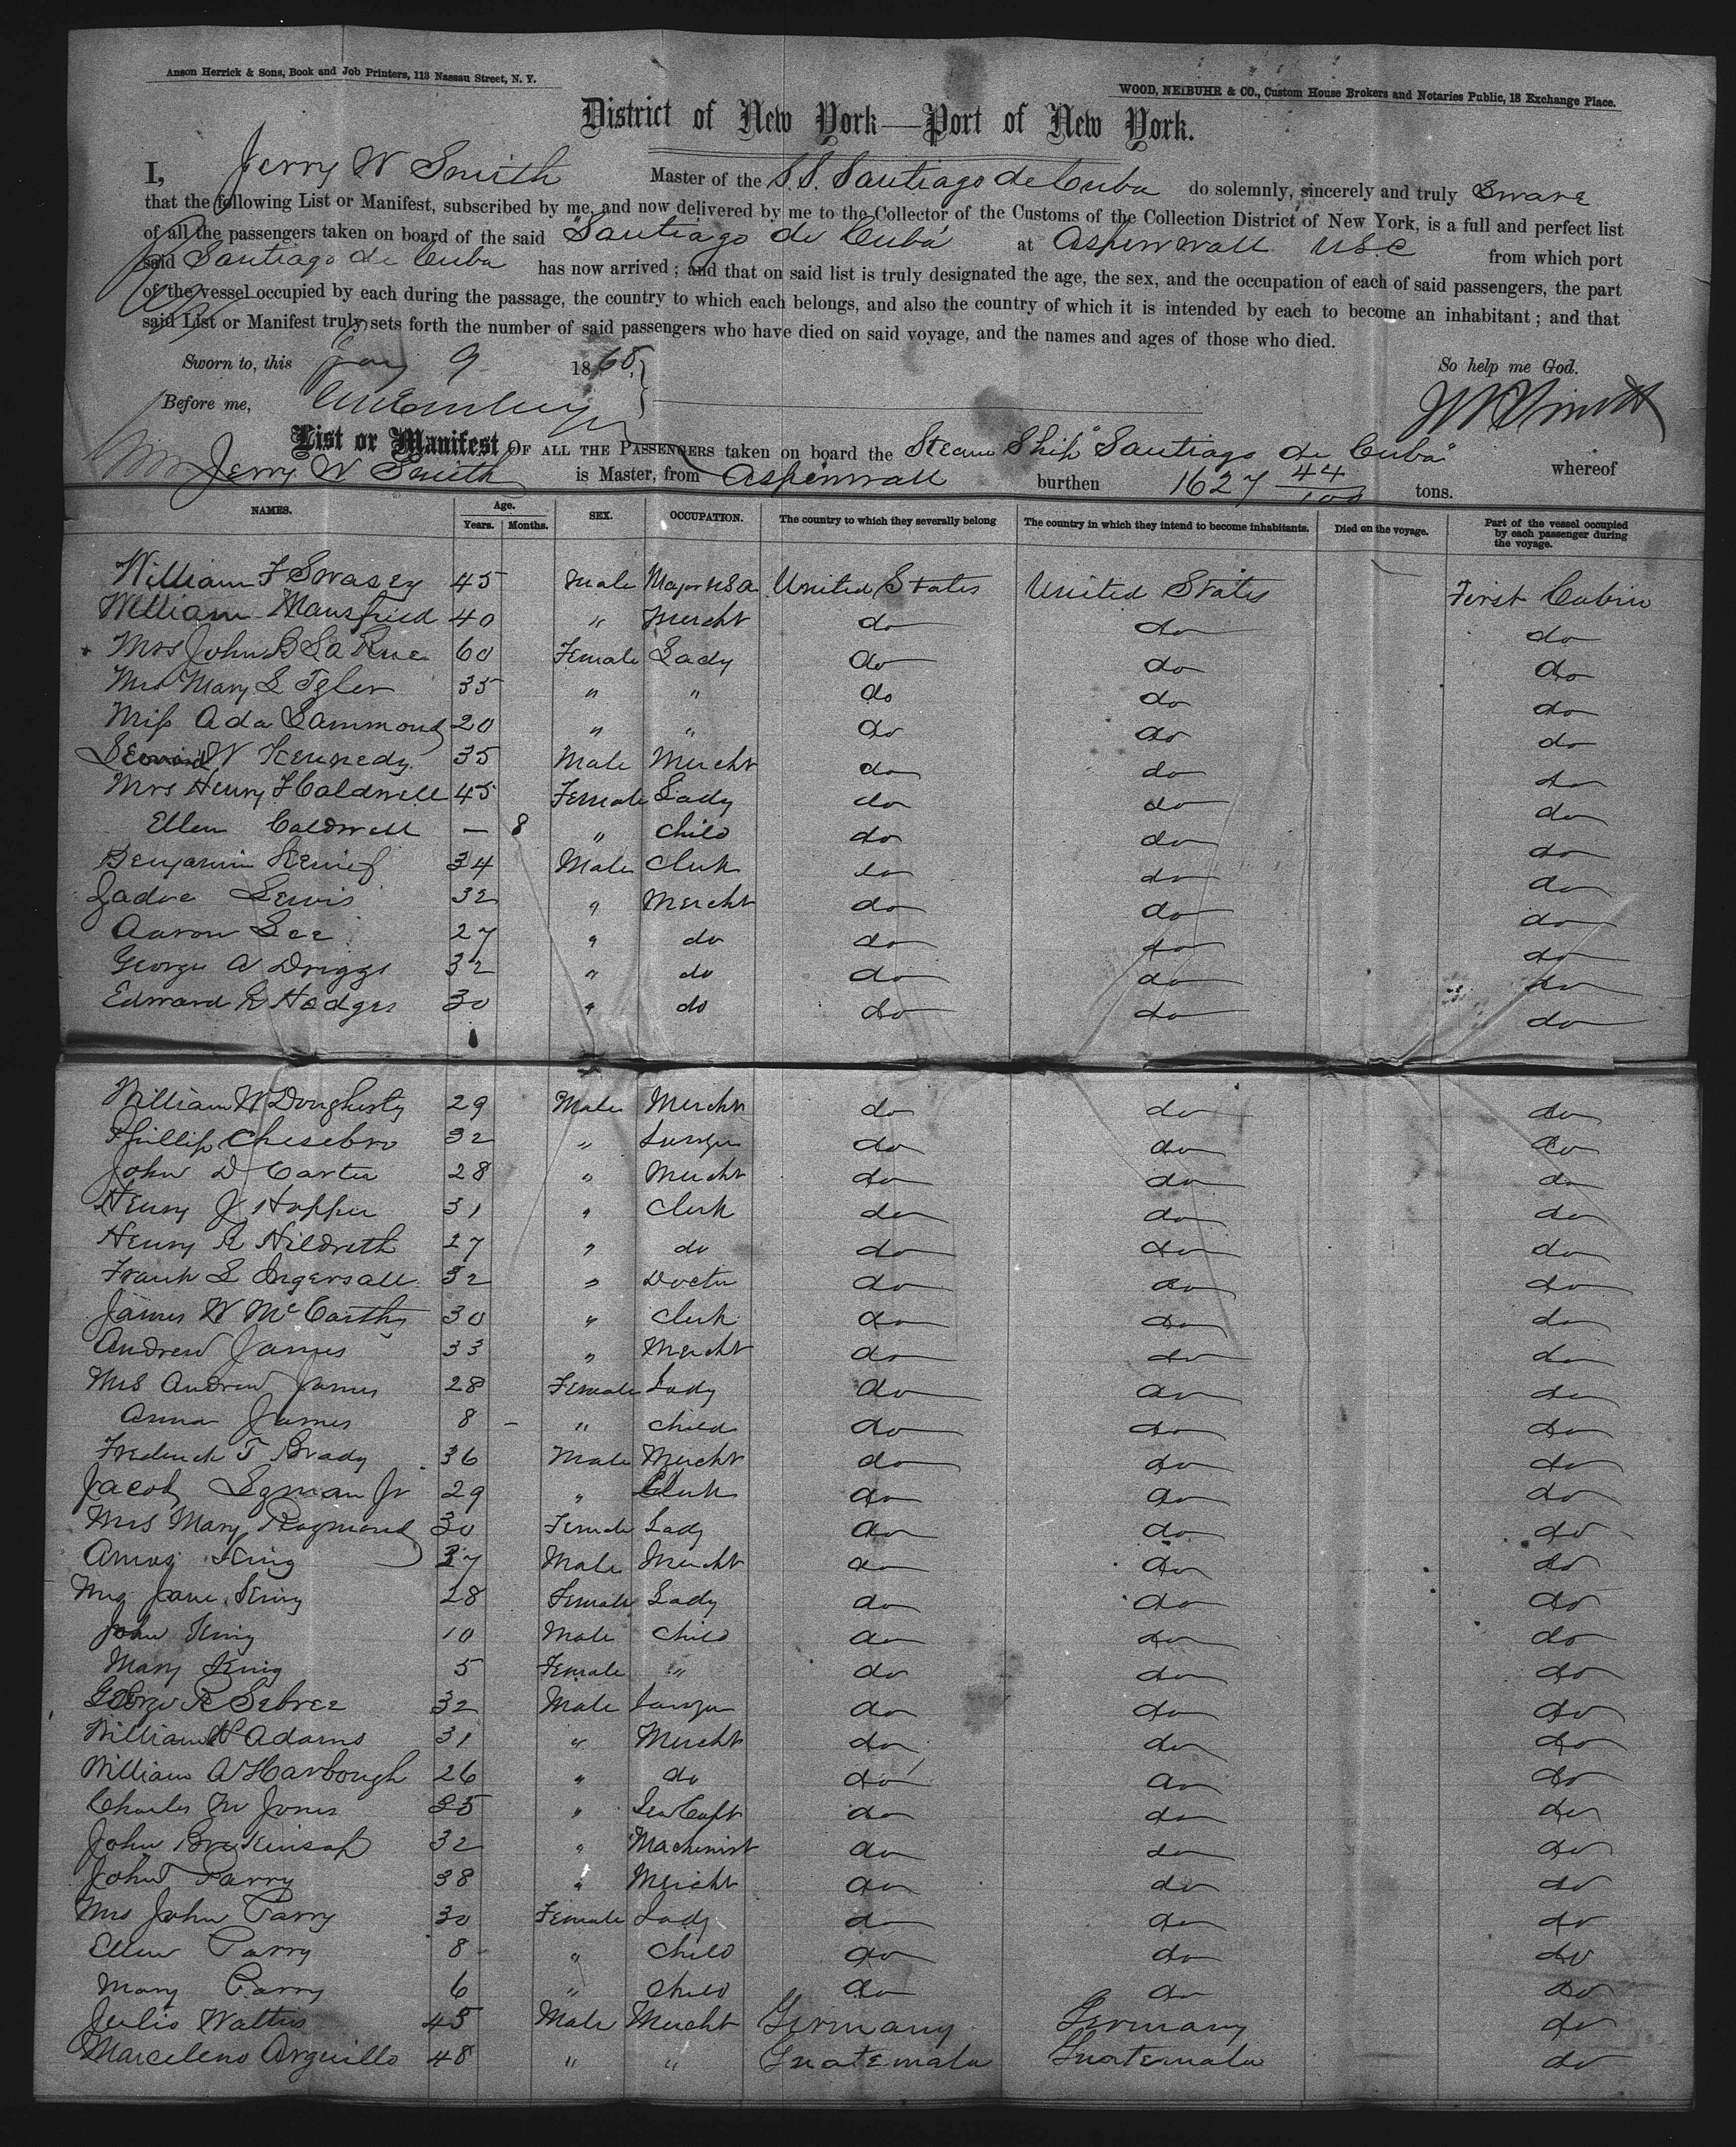 Anson Herrick & Sons, Book and Job Printers, 113 Nassau Street, N. Y.
WOOD, NEIBUHR & CO., Custom House Brokers and Notaries Public, 18 Exchange Place.
District of New York—Port of New York.
I, Jerry W Smith Master of the S.S. Santiago de Cuba do solemnly, sincerely and truly Sware
that the following List or Manifest, subscribed by me, and now delivered by me to the Collector of the Customs of the Collection District of New York, is a full and perfect list
of all the passengers taken on board of the said "Santiago de Cuba" at Aspinwall U.S.C from which port
said Santiago de Cuba has now arrived; and that on said list is truly designated the age, the sex, and the occupation of each of said passengers, the part
of the vessel occupied by each during the passage, the country to which each belongs, and also the country of which it is intended by each to become an inhabitant; and that
said List or Manifest truly sets forth the number of said passengers who have died on said voyage, and the names and ages of those who died.
Sworn to, this Jany 9 1868, So help me God.
Before me, JW Smith
List or Manifest OF ALL THE PASSENGERS taken on board the Steam Ship "Santiago de Cuba" whereof
Jerry W Smith is Master, from Aspinwall burthen 1627 44/100 tons.
NAMES. Age. Years. Months. SEX. OCCUPATION. The country to which they severally belong The country in which they intend to become inhabitants. Died on the voyage. Part of the vessel occupied by each passenger during the voyage.
William F Swasey 45 Male Major USA United States United States First Cabin
William Mansfield 40 " Mercht do do do
Mrs John B La Rue 60 Female Lady do do do
Mrs Mary L Tyler 35 " " do do do
Miss Ada Lammond 20 " " do do do
W Kennedy 35 Male Mercht do do do
Mrs Henry F Caldwell 45 Female Lady do do do
Ellen Caldwell — 8 " Child do do do
Benjamin 34 Male Clerk do do do
Zadoc Lewis 32 " Mercht do do do
Aaron Lee 27 " do do do do
George A Driggs 32 " do do do do
Edward R Hodges 30 " do do do do
William W Dougherty 29 Male Mercht do do do
Phillip Chesebro 32 " Lawyer do do do
John D Carter 28 " Mercht do do do
Henry J Hopper 31 " Clerk do do do
Henry R Hildreth 27 " do do do do
Frank L Ingersall 32 " Doctor do do do
James W McCarthy 30 " Clerk do do do
Andrew James 33 " Mercht do do do
Mrs Andrew James 28 Female Lady do do do
Anna James 8 - " Child do do do
Frederick T Brady 36 Male Mercht do do do
Jacob Lyman Jr 29 " Clerk do do do
Mrs Mary Raymond 30 Female Lady do do do
Amos King 37 Male Mercht do do do
Mrs Jane King 28 Female Lady do do do
John King 10 Male Child do do do
Mary King 5 Female " do do do
George R Sebree 32 Male Lawyer do do do
William H Adams 31 " Mercht do do do
William A Harbough 26 " do do do do
Charles M Jones 35 " Sea Capt do do do
John 32 " Machinist do do do
John T Parry 38 " Mercht do do do
Mrs John Parry 30 Female Lady do do do
Ellen Parry 8 - " Child do do do
Mary Parry 6 " Child do do do
Julio Walters 45 Male Mercht Germany Germany do
Marceleno Arguillo 48 " " Guatemala Guatemala do